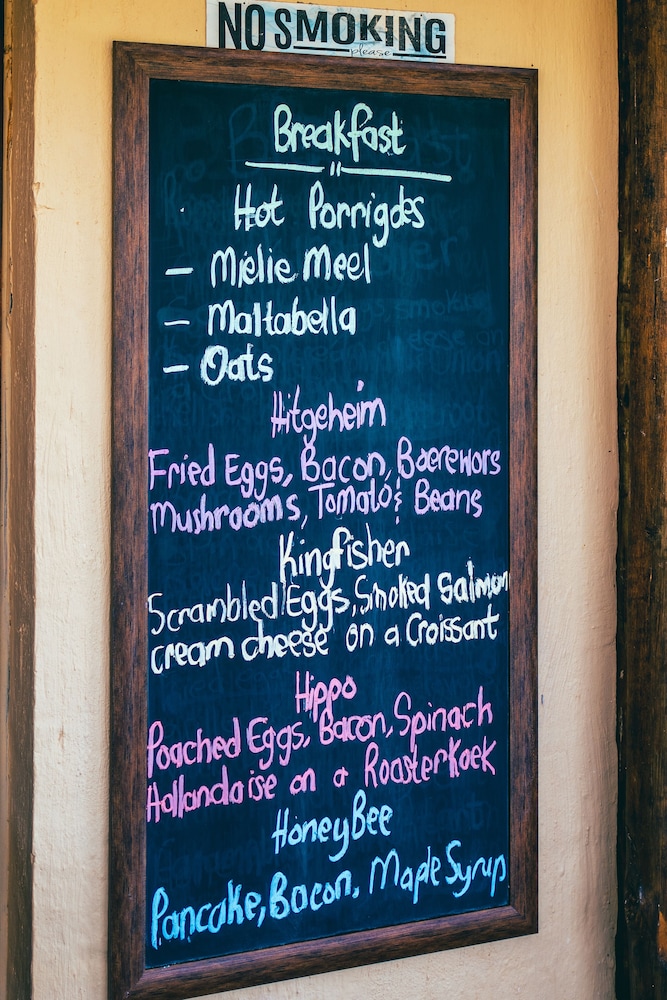 NO SMOKING
please
Breakfast
Hot Porrigdes
- Mielie Meel
- Maltabella
- Oats
Hitgeheim
Fried Eggs, Bacon, Boerewors
Mushrooms, Tomato & Beans
Kingfisher
Scrambled Eggs, Smoked Salmon
cream cheese on a Croissant
Hippo
Poached Eggs, Bacon, Spinach
Hollandaise on a Roasterkoek
HoneyBee
Pancake, Bacon, Maple Syrup